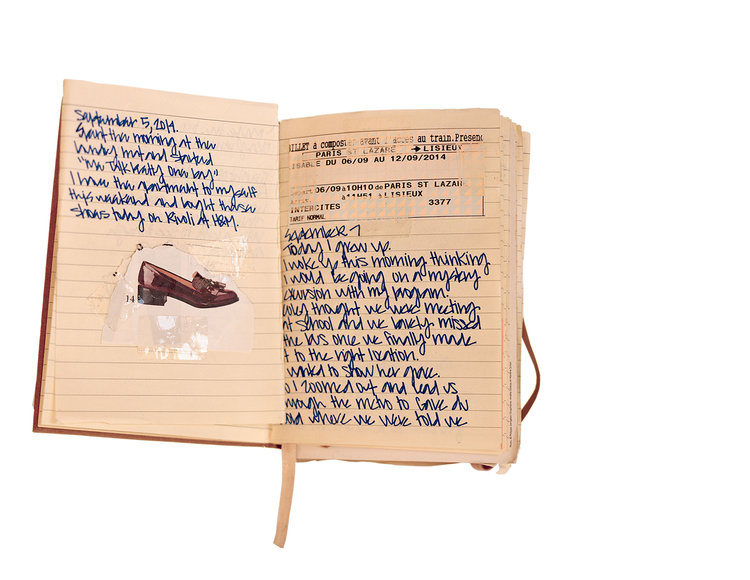 September 5, 2014.
Spent the morning at the
laundry mat and started
"Me Talk Pretty One Day"
I have the apartment to myself
this weekend and bought these
shoes today on Rivoli at H&M.
14
ILLET à composter avant l'accès au train.Presenc
PARIS ST LAZARE → LISIEUX
ISABLE DU 06/09 AU 12/09/2014
06/09 à10H10 de PARIS ST LAZAR
à11H51 à LISIEUX
INTERCITES 3377
TARIF NORMAL
September 7
Today I grew up.
I woke up this morning thinking
I would be going on a mystery
excursion with my program.
thought we were meeting
at school and we barely missed
the bus once we finally made
it to the right location.
wanted to show her grace.
So I zoomed out and lead us
through the metro to Gare du
Nord where we were told we